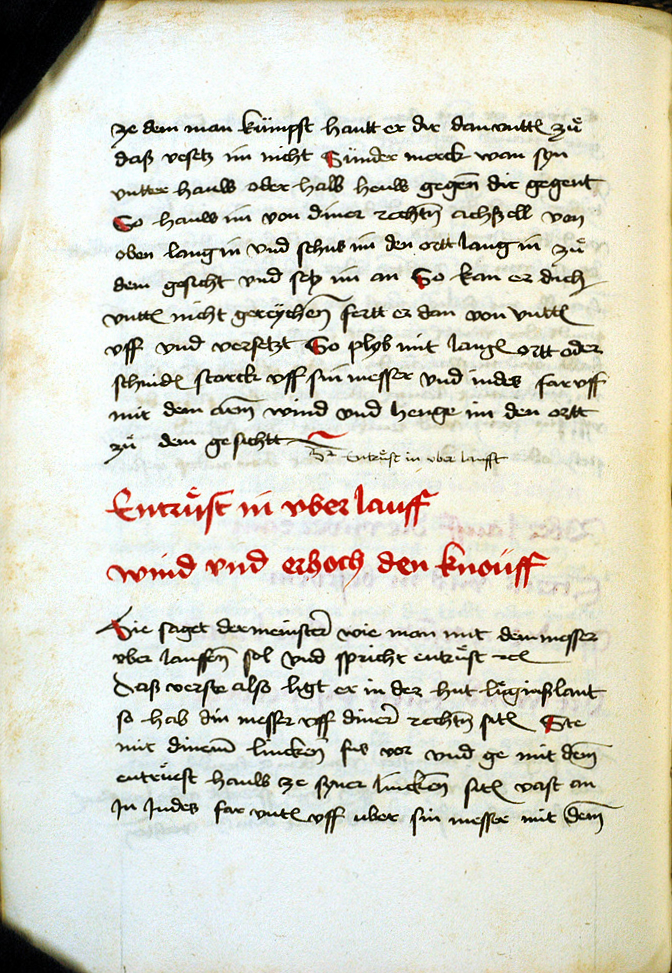 ze dem man kümpst hautt er dir dan vnttē zů
daß vesetz im nicht Sünder merck wan syn
vntter hauw oder halb hews gegen dir gegent
So hauw im von diner rechtn̄ achszell von
oben lang in vnd schus im den ortt lang in zů
dem gesicht vnd setz im an So kan er dich
vnttē nicht gereychen̄ fertt er dan von vnttē
vff vnd versetzt So plyb mit langē ortt oder
schnidē starck vff sin messer vnd indes far vff
mit dem arm̄ wind vnd henge im den ortt
zů dem gesichtt
Entrůst in vber laufft
Entrůst in vber lauff
wind vnd erhoch den knouff
Hie saget der meinster̄ wie man mit dem messer
vber lauffen̄ sol vnd spricht entrůst
Daß verste also ligt er in der hut lůginßlant
so hab din messer vff diner̄ rechtn̄ sitē Ste
mit dinem̄ lincken̄ fus vor vnd ge mit dem̄
entruest hauw ze syner lincken̄ sitē vast an
In Indes far vntē vff vber sin messer mit dem̄